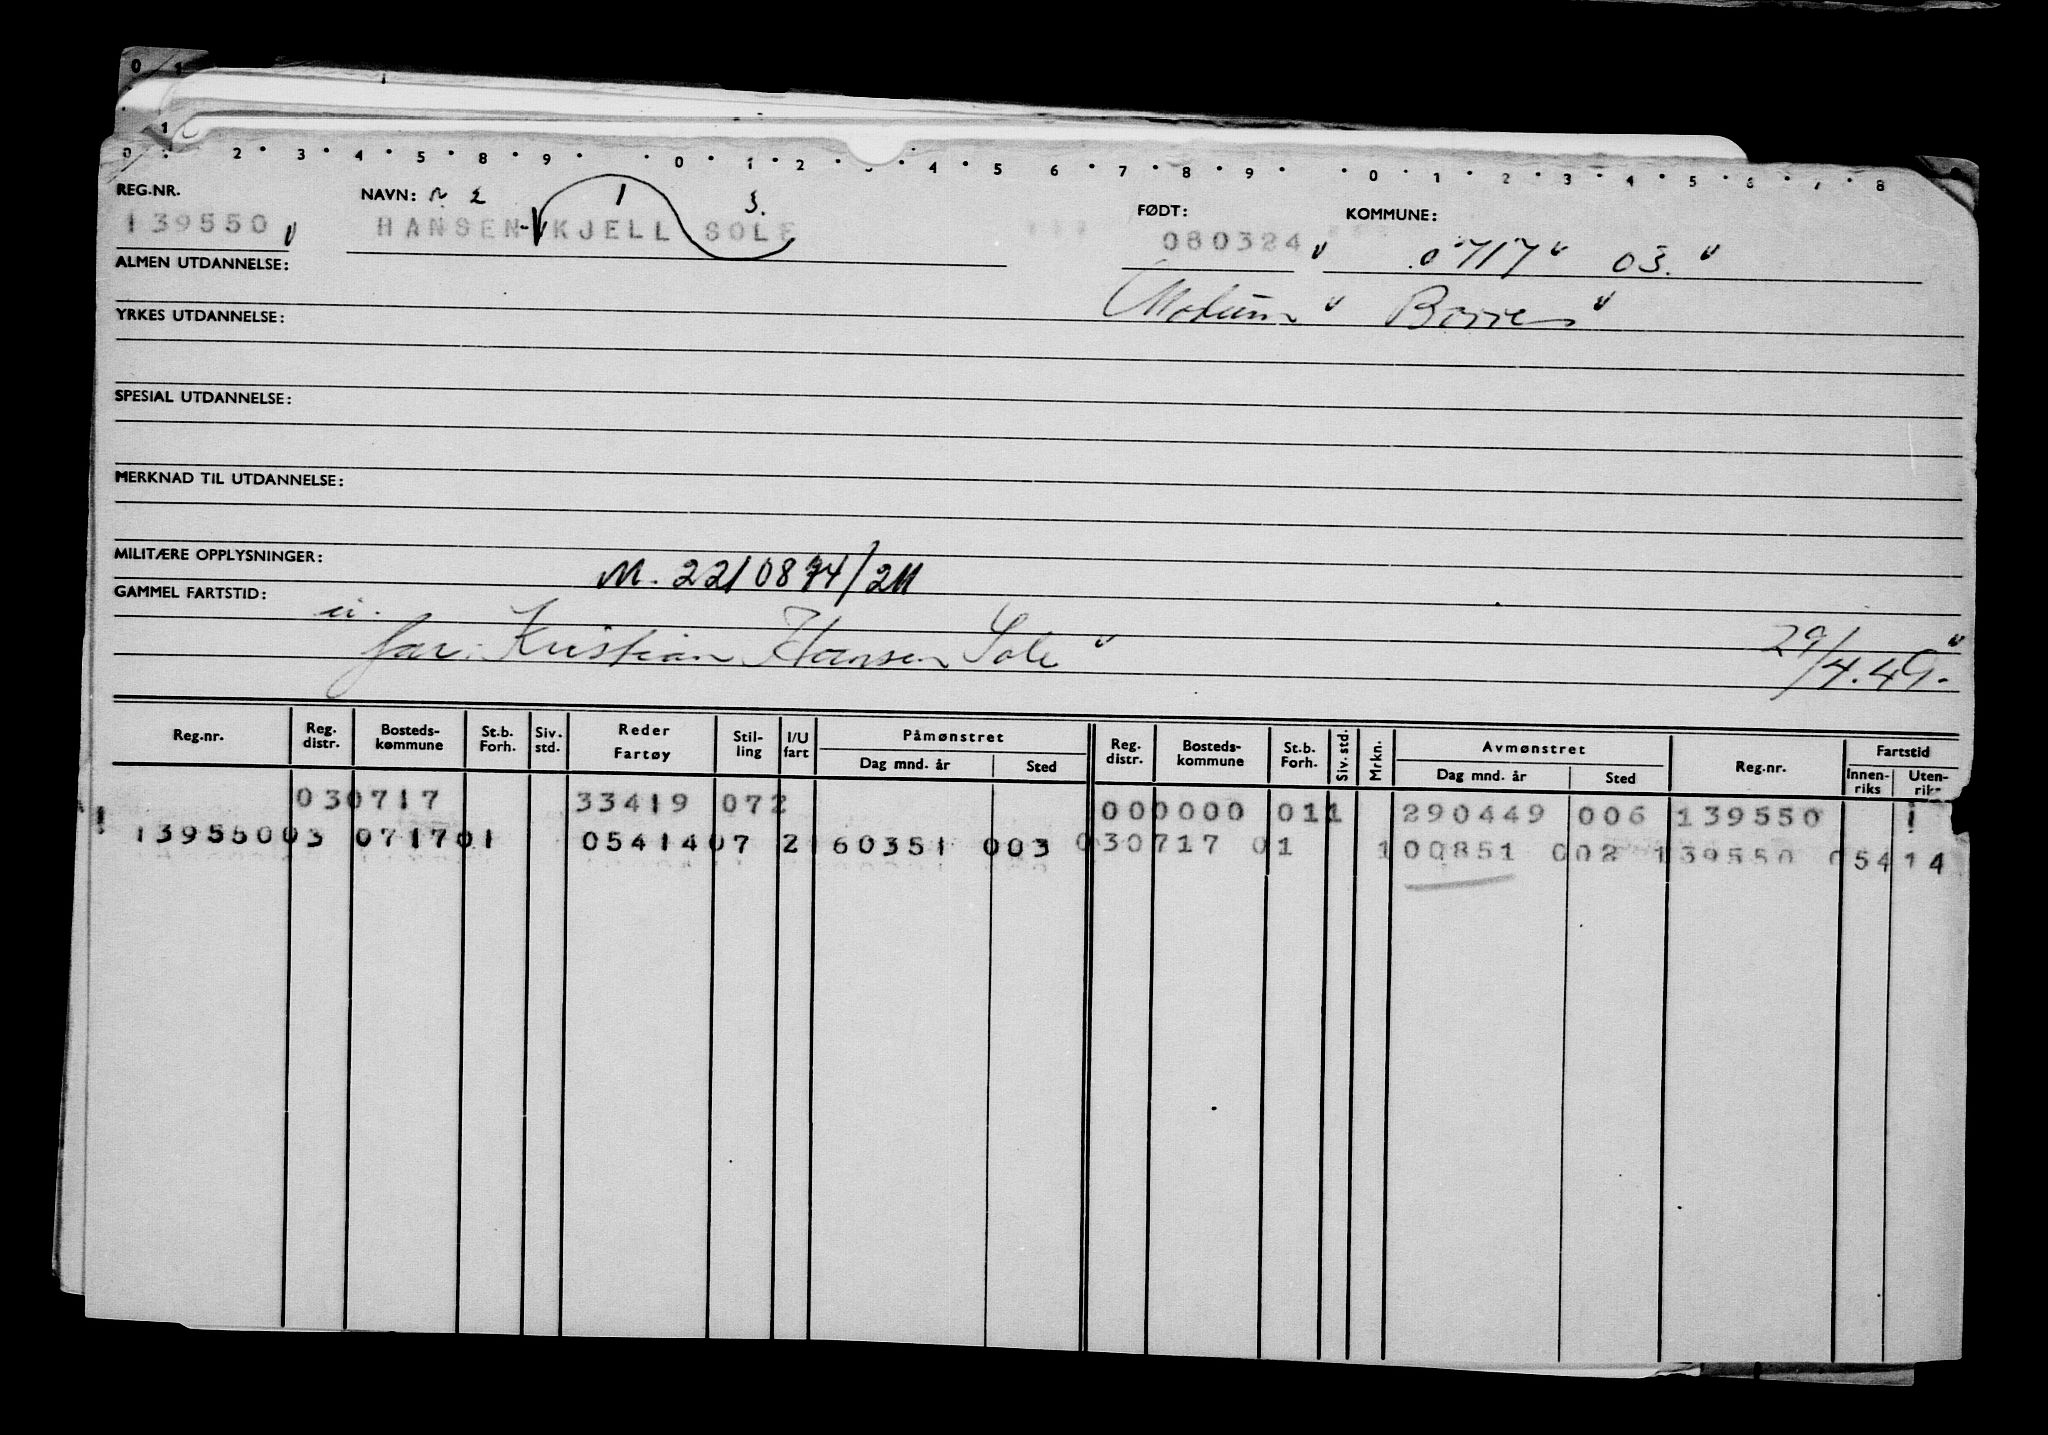 0 1
1
0 · 2 · 3 · 4 · 5 · 8 · 9 · · 0 · 1 · 2 · 3 · 4 · 5 6 · 7 · 8 · 9 · · 0 · 1 · 2 · 3 · 4 · 5 · 6 · 7 · 8
2 1 3.
REG.NR. NAVN: FØDT: KOMMUNE:
139550 HANSEN-KJELL SOLE 080324 0717 03.
ALMEN UTDANNELSE: Modum Borre
YRKES UTDANNELSE:
SPESIAL UTDANNELSE:
MERKNAD TIL UTDANNELSE:
MILITÆRE OPPLYSNINGER: M. 2210874/211
GAMMEL FARTSTID:
far: Kristian Hansen Sole 29/4.49.
Reg.nr. Reg. distr. Bosteds-kommune St.b. Forh. Siv. std. Reder Fartøy Stil-ling I/U fart Påmønstret Dag mnd. år Sted Reg. distr. Bosteds-kommune St.b. Forh. Siv. std. Mrkn. Avmønstret Dag mnd. år Sted Reg.nr. Fartstid Innen-riks Uten-riks
030717 33419 072 000000 011 290449 006 139550 1
13955003 071701 0541407 2160351 003 030717 01 100851 002 139550 05414